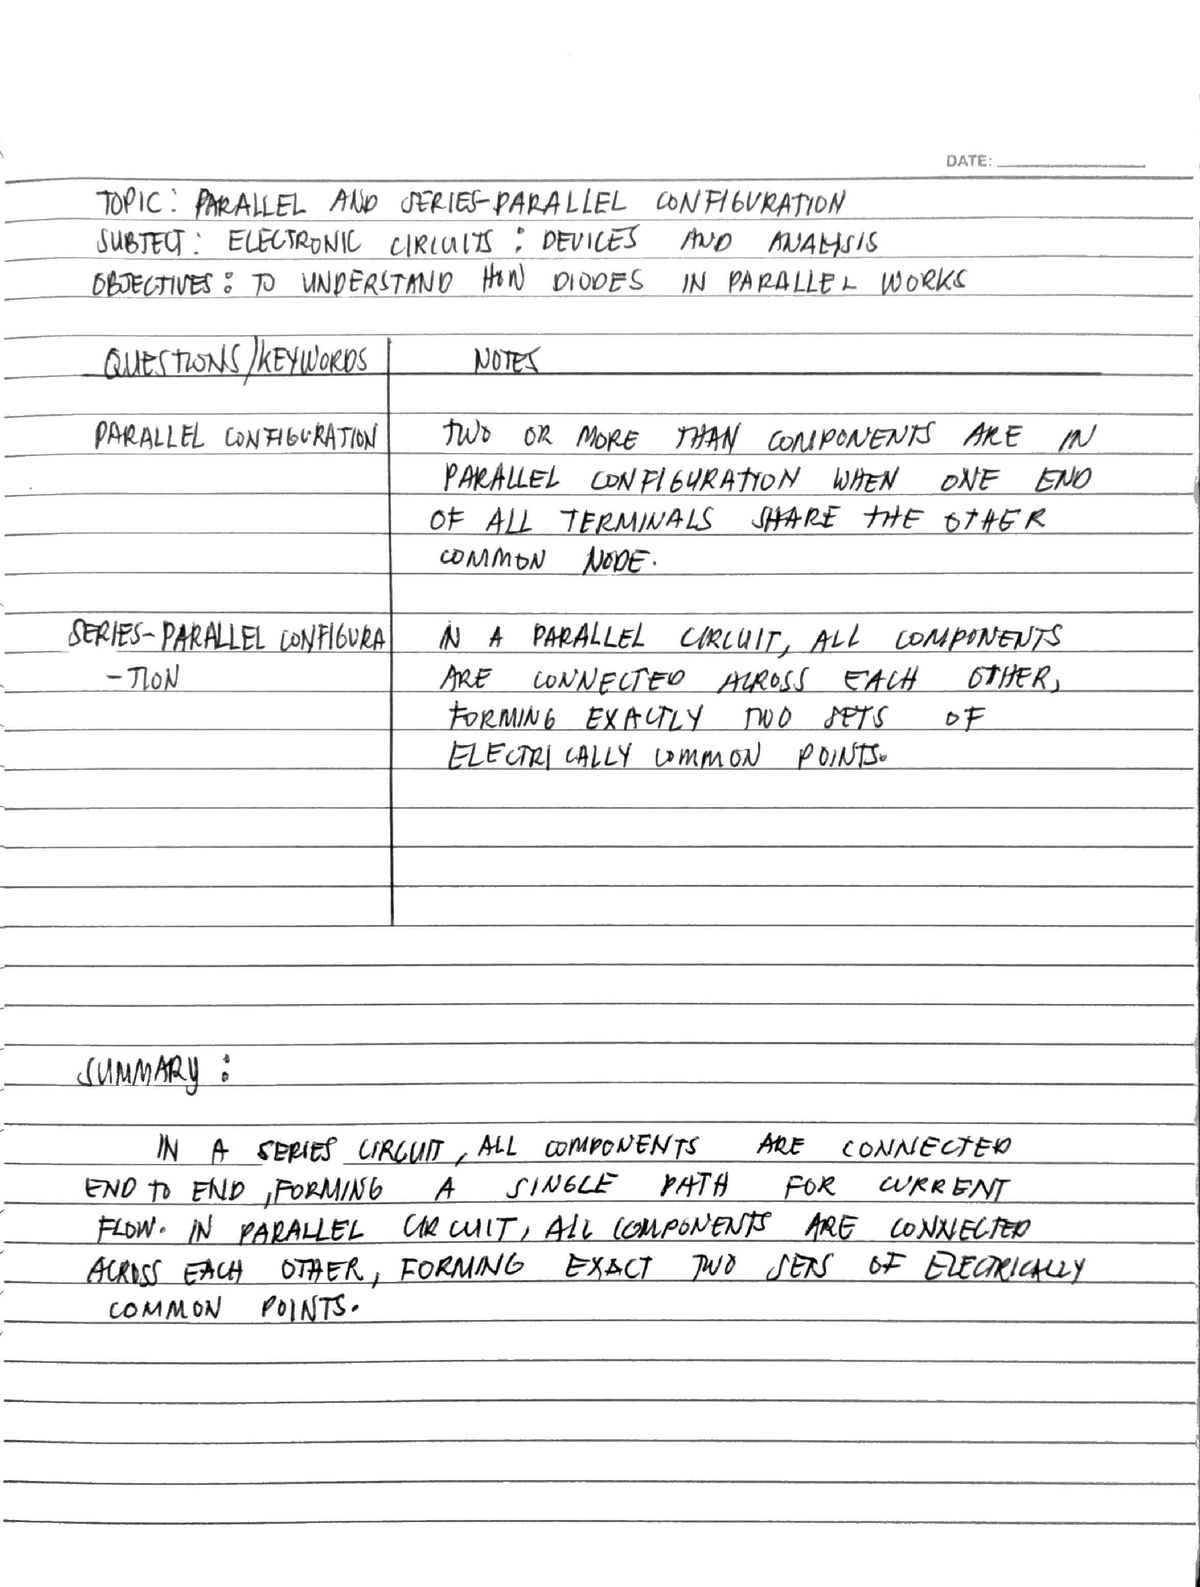 DATE:
TOPIC: PARALLEL AND SERIES-PARALLEL CONFIGURATION
SUBJECT: ELECTRONIC CIRCUITS: DEVICES AND ANALYSIS
OBJECTIVES: TO UNDERSTAND HOW DIODES IN PARALLEL WORKS
QUESTIONS/KEYWORDS NOTES
PARALLEL CONFIGURATION TWO OR MORE THAN COMPONENTS ARE IN
PARALLEL CONFIGURATION WHEN ONE END
OF ALL TERMINALS SHARE THE OTHER
COMMON NODE.
SERIES-PARALLEL CONFIGURA IN A PARALLEL CIRCUIT, ALL COMPONENTS
-TION ARE CONNECTED ACROSS EACH OTHER,
FORMING EXACTLY TWO SETS OF
ELECTRICALLY COMMON POINTS.
SUMMARY:
IN A SERIES CIRCUIT, ALL COMPONENTS ARE CONNECTED
END TO END, FORMING A SINGLE PATH FOR CURRENT
FLOW. IN PARALLEL CIRCUIT, ALL COMPONENTS ARE CONNECTED
ACROSS EACH OTHER, FORMING EXACT TWO SETS OF ELECTRICALLY
COMMON POINTS.